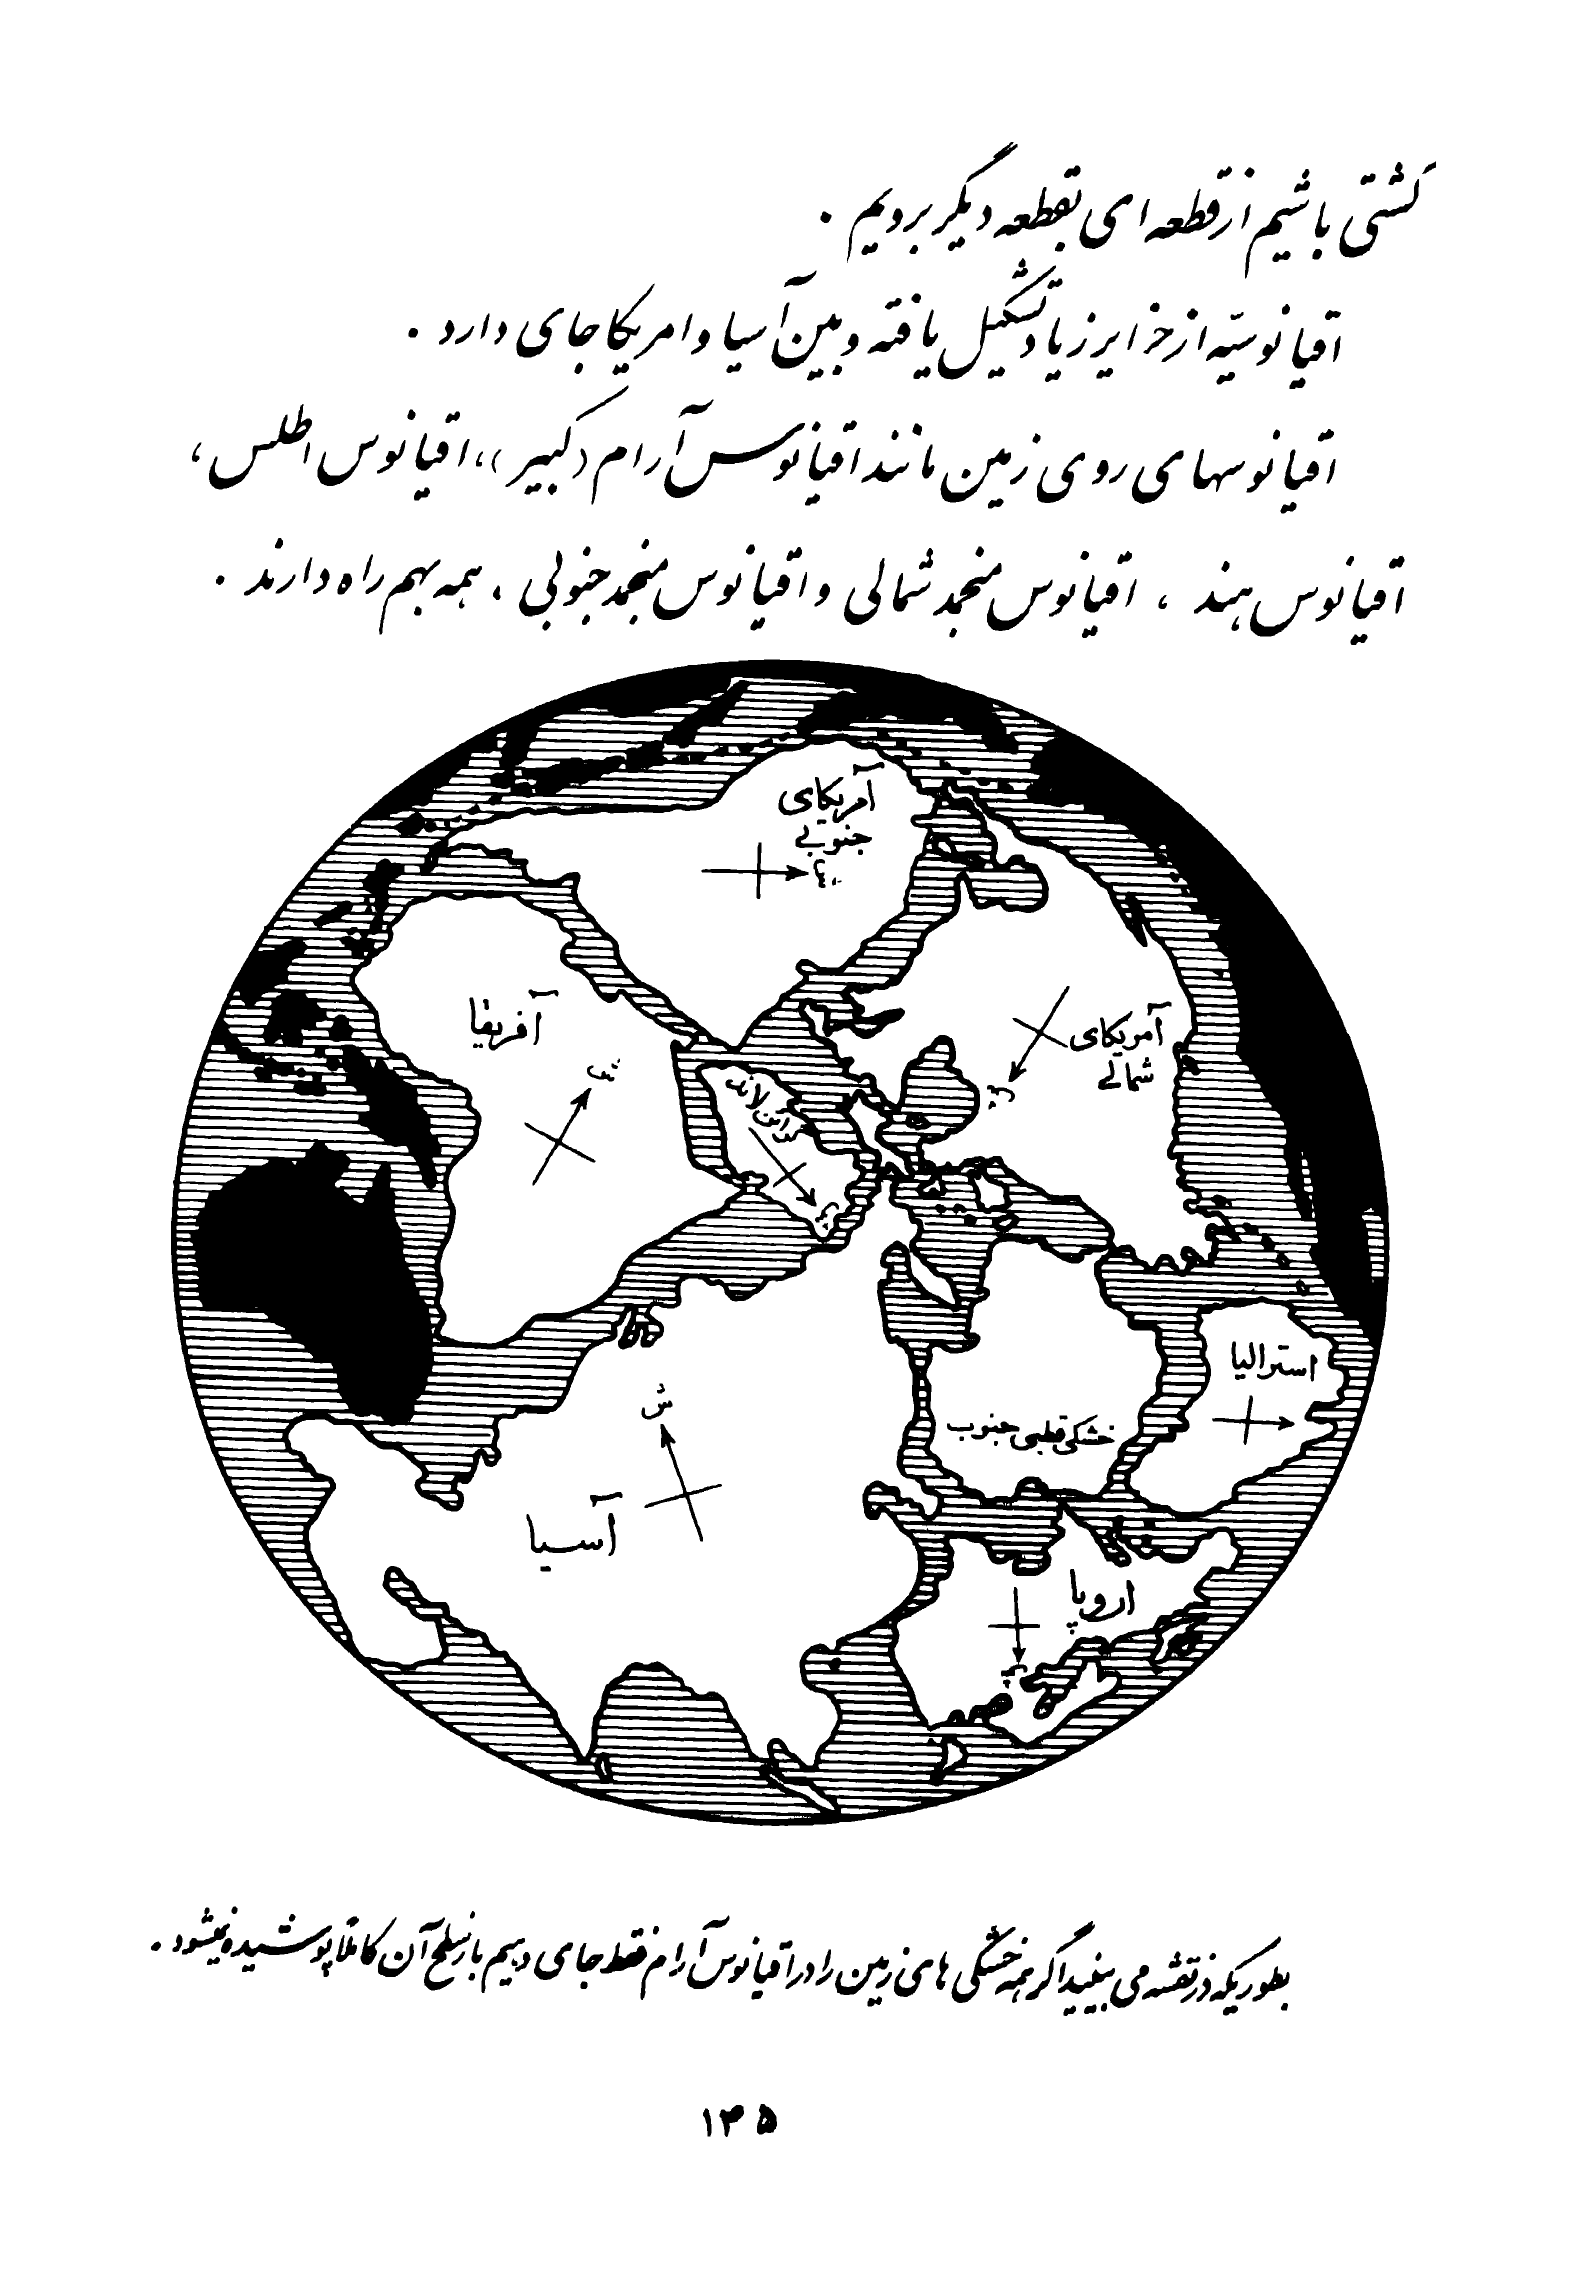 کشتی باشیم از قطعه ای بقطعه دیگر برویم .
اقیانوسیّه از جزایر زیاد تشکیل یافته و بین آسیا و امریکا جای دارد .
اقیانوسهای روی زمین مانند اقیانوس آرام (کبیر)، اقیانوس اطلس ،
اقیانوس هند ، اقیانوس منجمد شمالی و اقیانوس منجمد جنوبی ، همه بهم راه دارند .
آمریکای
جنوبی
ش
آمریکای
شمالی
ش
آفریقا
ش
گرائن لاند
ش
استرالیا
خشکی قطبی جنوب
ش
آسیا
اروپا
ش
بطوریکه در نقشه می بینید اگر همه خشکی های زمین را در اقیانوس آرام فقط جای دهیم باز سطح آن کاملاً پوشیده نمیشود .
۱۳۵